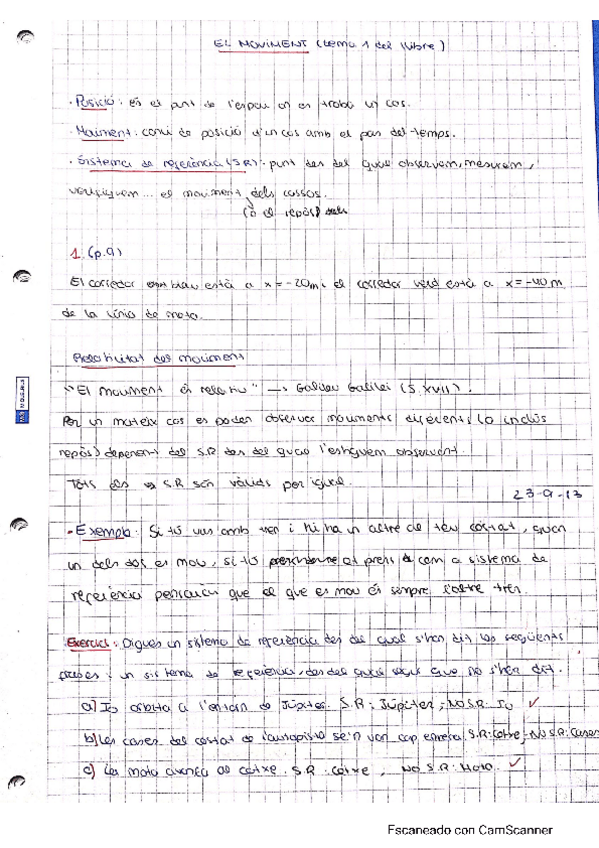 EL MOVIMENT (tema 1 del llibre)
· Posició: és el punt de l'espai on es troba un cos.
· Moviment: canvi de posició d'un cos amb el pas del temps.
· Sistema de referència (SR): punt des del qual observem, mesurem,
verifiquem... el moviment dels cossos.
(o el repòs)
1. (p.9)
El corredor blau està a x = -20m i el corredor verd està a x = -40 m
de la línia de meta.
Relativitat del moviment
"El moviment és relatiu" → Galileu Galilei (S. XVII).
Per un mateix cos es poden observar moviments diferents (o inclús
repòs) depenent del S.R des del qual l'estiguem observant.
Tots els S.R són vàlids per igual.
23-9-13
- Exemple: Si tú vas amb tren i hi ha un altre al teu costat, quan
un dels dos es mou, si tú et prens com a sistema de
referència pensaràs que el que es mou és sempre l'altre tren.
Exercici: Digues un sistema de referència des del qual s'han dit les següents
frases i un sistema de referència, des del qual segur que no s'han dit.
a) Io orbita a l'entorn de Júpiter. S.R: Júpiter; NO S.R: Io ✓
b) Les cases del costat de l'autopista se'n van cap enrera. S.R: Cotxe - NO S.R: Cases
c) La moto avança al cotxe. S.R: Cotxe, NO S.R: Moto. ✓
Escaneado con CamScanner